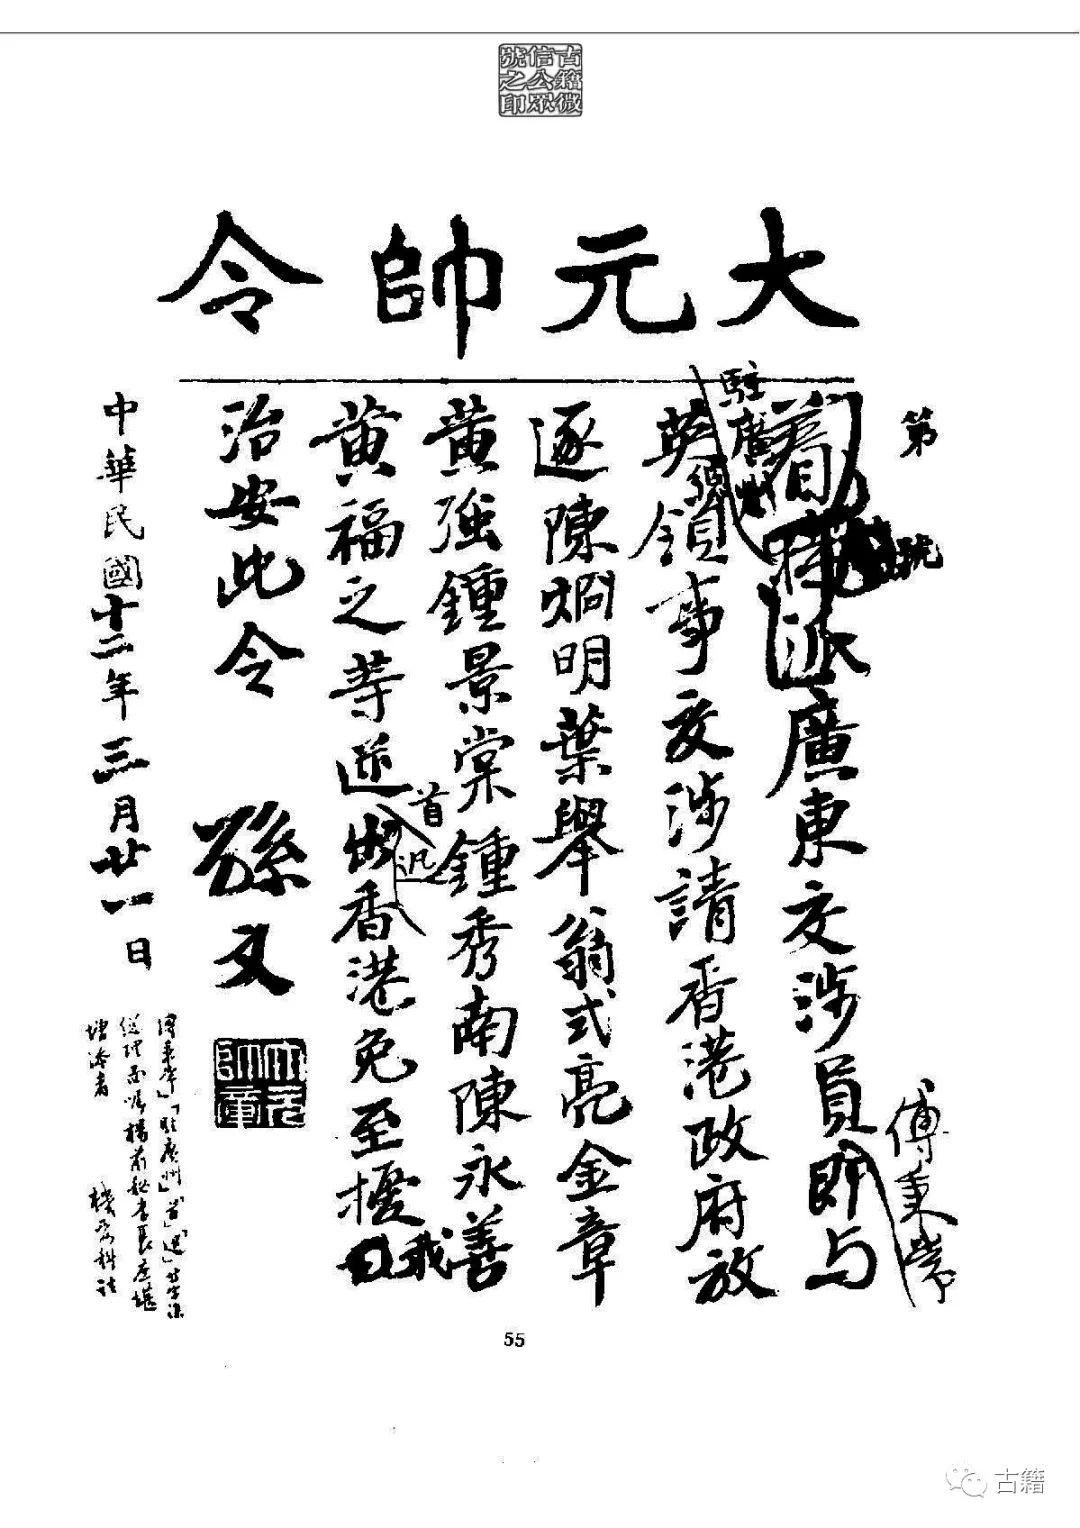 古籍微
信公眾
號之印
大元帥令
第 號
着特派廣東交涉員傅秉常即與
駐廣州英總領事交涉請香港政府放
逐陳烱明葉舉翁式亮金章
黃強鍾景棠鍾秀南陳永善
黃福之等逆首迅出香港免至擾我
治安此令
孫文
大元帥章
中華民國十二年三月廿一日
傅秉常」「駐廣州」「首」「迅」等字係
從理面囑楊前秘書長庶堪
增添者
機要科註
55
古籍